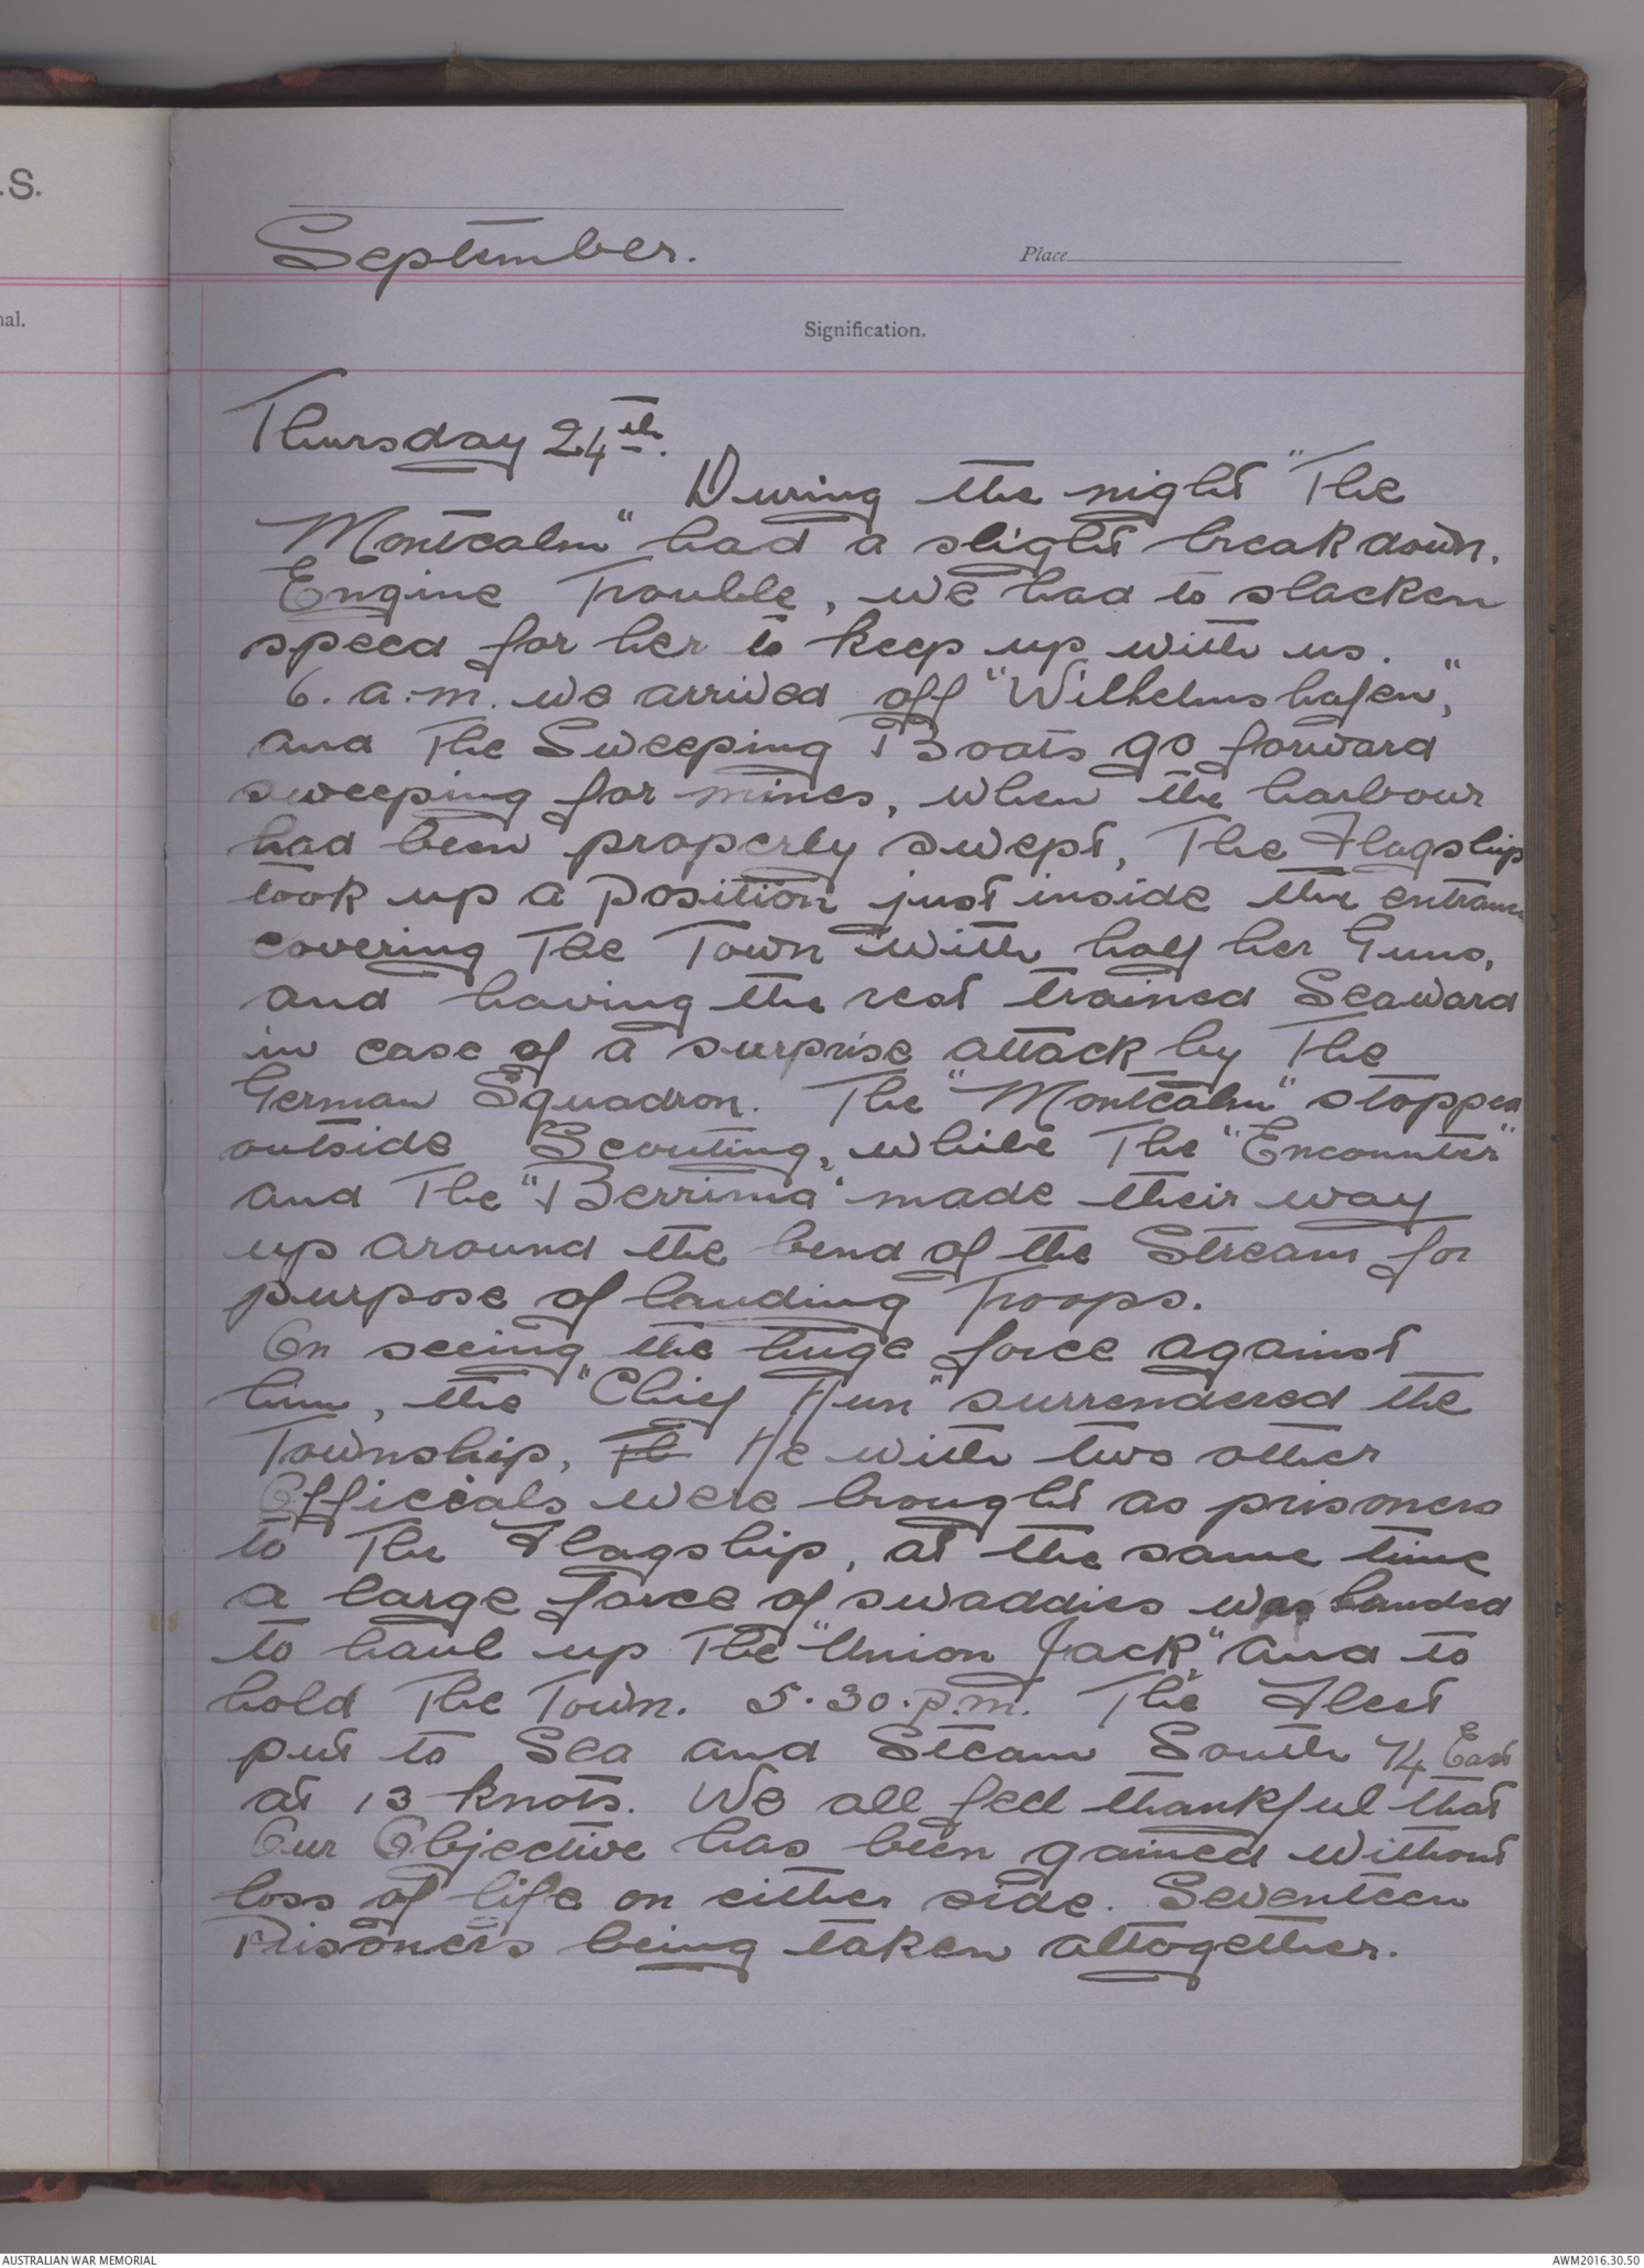 .S.
nal.
September.
Place
Signification.
Thursday 24th.
During the night "The
Montcalm" had a slight breakdown.
Engine Trouble, we had to slacken
speed for her to keep up with us.
6. a.m. we arrived off "Wilhelmshafen",
and The Sweeping Boats go forward
sweeping for mines, when the harbour
had been properly swept, The Flagship
took up a position just inside the entrance
covering The Town with half her Guns,
and having the rest trained Seaward
in case of a surprise attack by The
German Squadron. The "Montcalm" stopped
outside Scouting, while The "Encounter"
and The "Berrima" made their way
up around the bend of the Stream for
purpose of landing Troops.
On seeing the huge force against
him, the "Chief Hun" surrendered the
Township, He with two other
Officials were brought as prisoners
to The Flagship, at the same time
a large force of swaddies was landed
to haul up The "Union Jack", and to
hold The Town. 5.30.p.m. The Fleet
put to Sea and Steam South 74 East
at 13 knots. We all feel thankful that
Our Objective has been gained without
loss of life on either side. Seventeen
Prisoners being taken altogether.
AUSTRALIAN WAR MEMORIAL
AWM2016.30.50